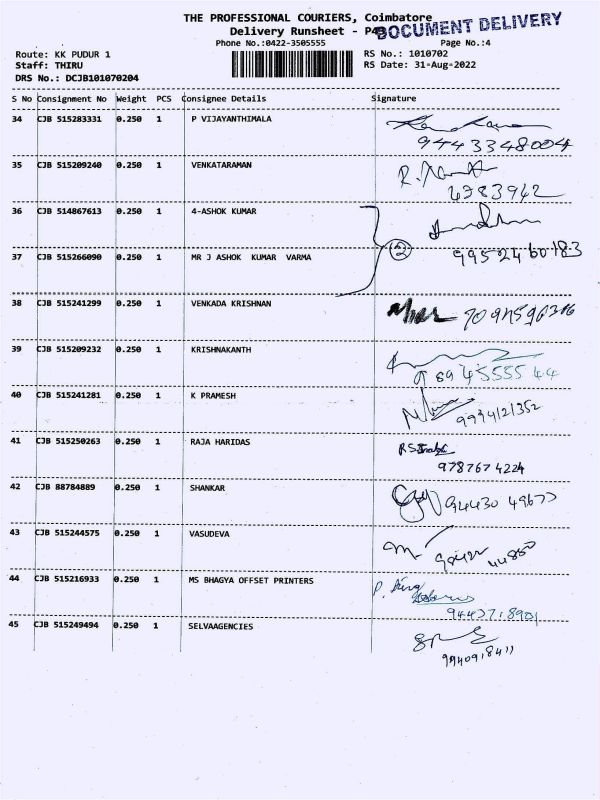 THE PROFESSIONAL COURIERS, Coimbatore
DOCUMENT DELIVERY
Delivery Runsheet - P4
Phone No.:0422-3505555
Page No.:4
Route: KK PUDUR 1
RS No.: 1010702
Staff: THIRU
RS Date: 31-Aug-2022
DRS No.: DCJB101070204
S No Consignment No Weight PCS Consignee Details Signature
34 CJB 515283331 0.250 1 P VIJAYANTHIMALA
9443348004
35 CJB 515209240 0.250 1 VENKATARAMAN
6383942
36 CJB 514867613 0.250 1 4-ASHOK KUMAR
2
37 CJB 515266090 0.250 1 MR J ASHOK KUMAR VARMA
9952460183
38 CJB 515241299 0.250 1 VENKADA KRISHNAN
39 CJB 515209232 0.250 1 KRISHNAKANTH
40 CJB 515241281 0.250 1 K PRAMESH
9994121352
41 CJB 515250263 0.250 1 RAJA HARIDAS
9787674224
42 CJB 88784889 0.250 1 SHANKAR
94430 49677
43 CJB 515244575 0.250 1 VASUDEVA
44 CJB 515216933 0.250 1 MS BHAGYA OFFSET PRINTERS
9443718901
45 CJB 515249494 0.250 1 SELVAAGENCIES
9940918411